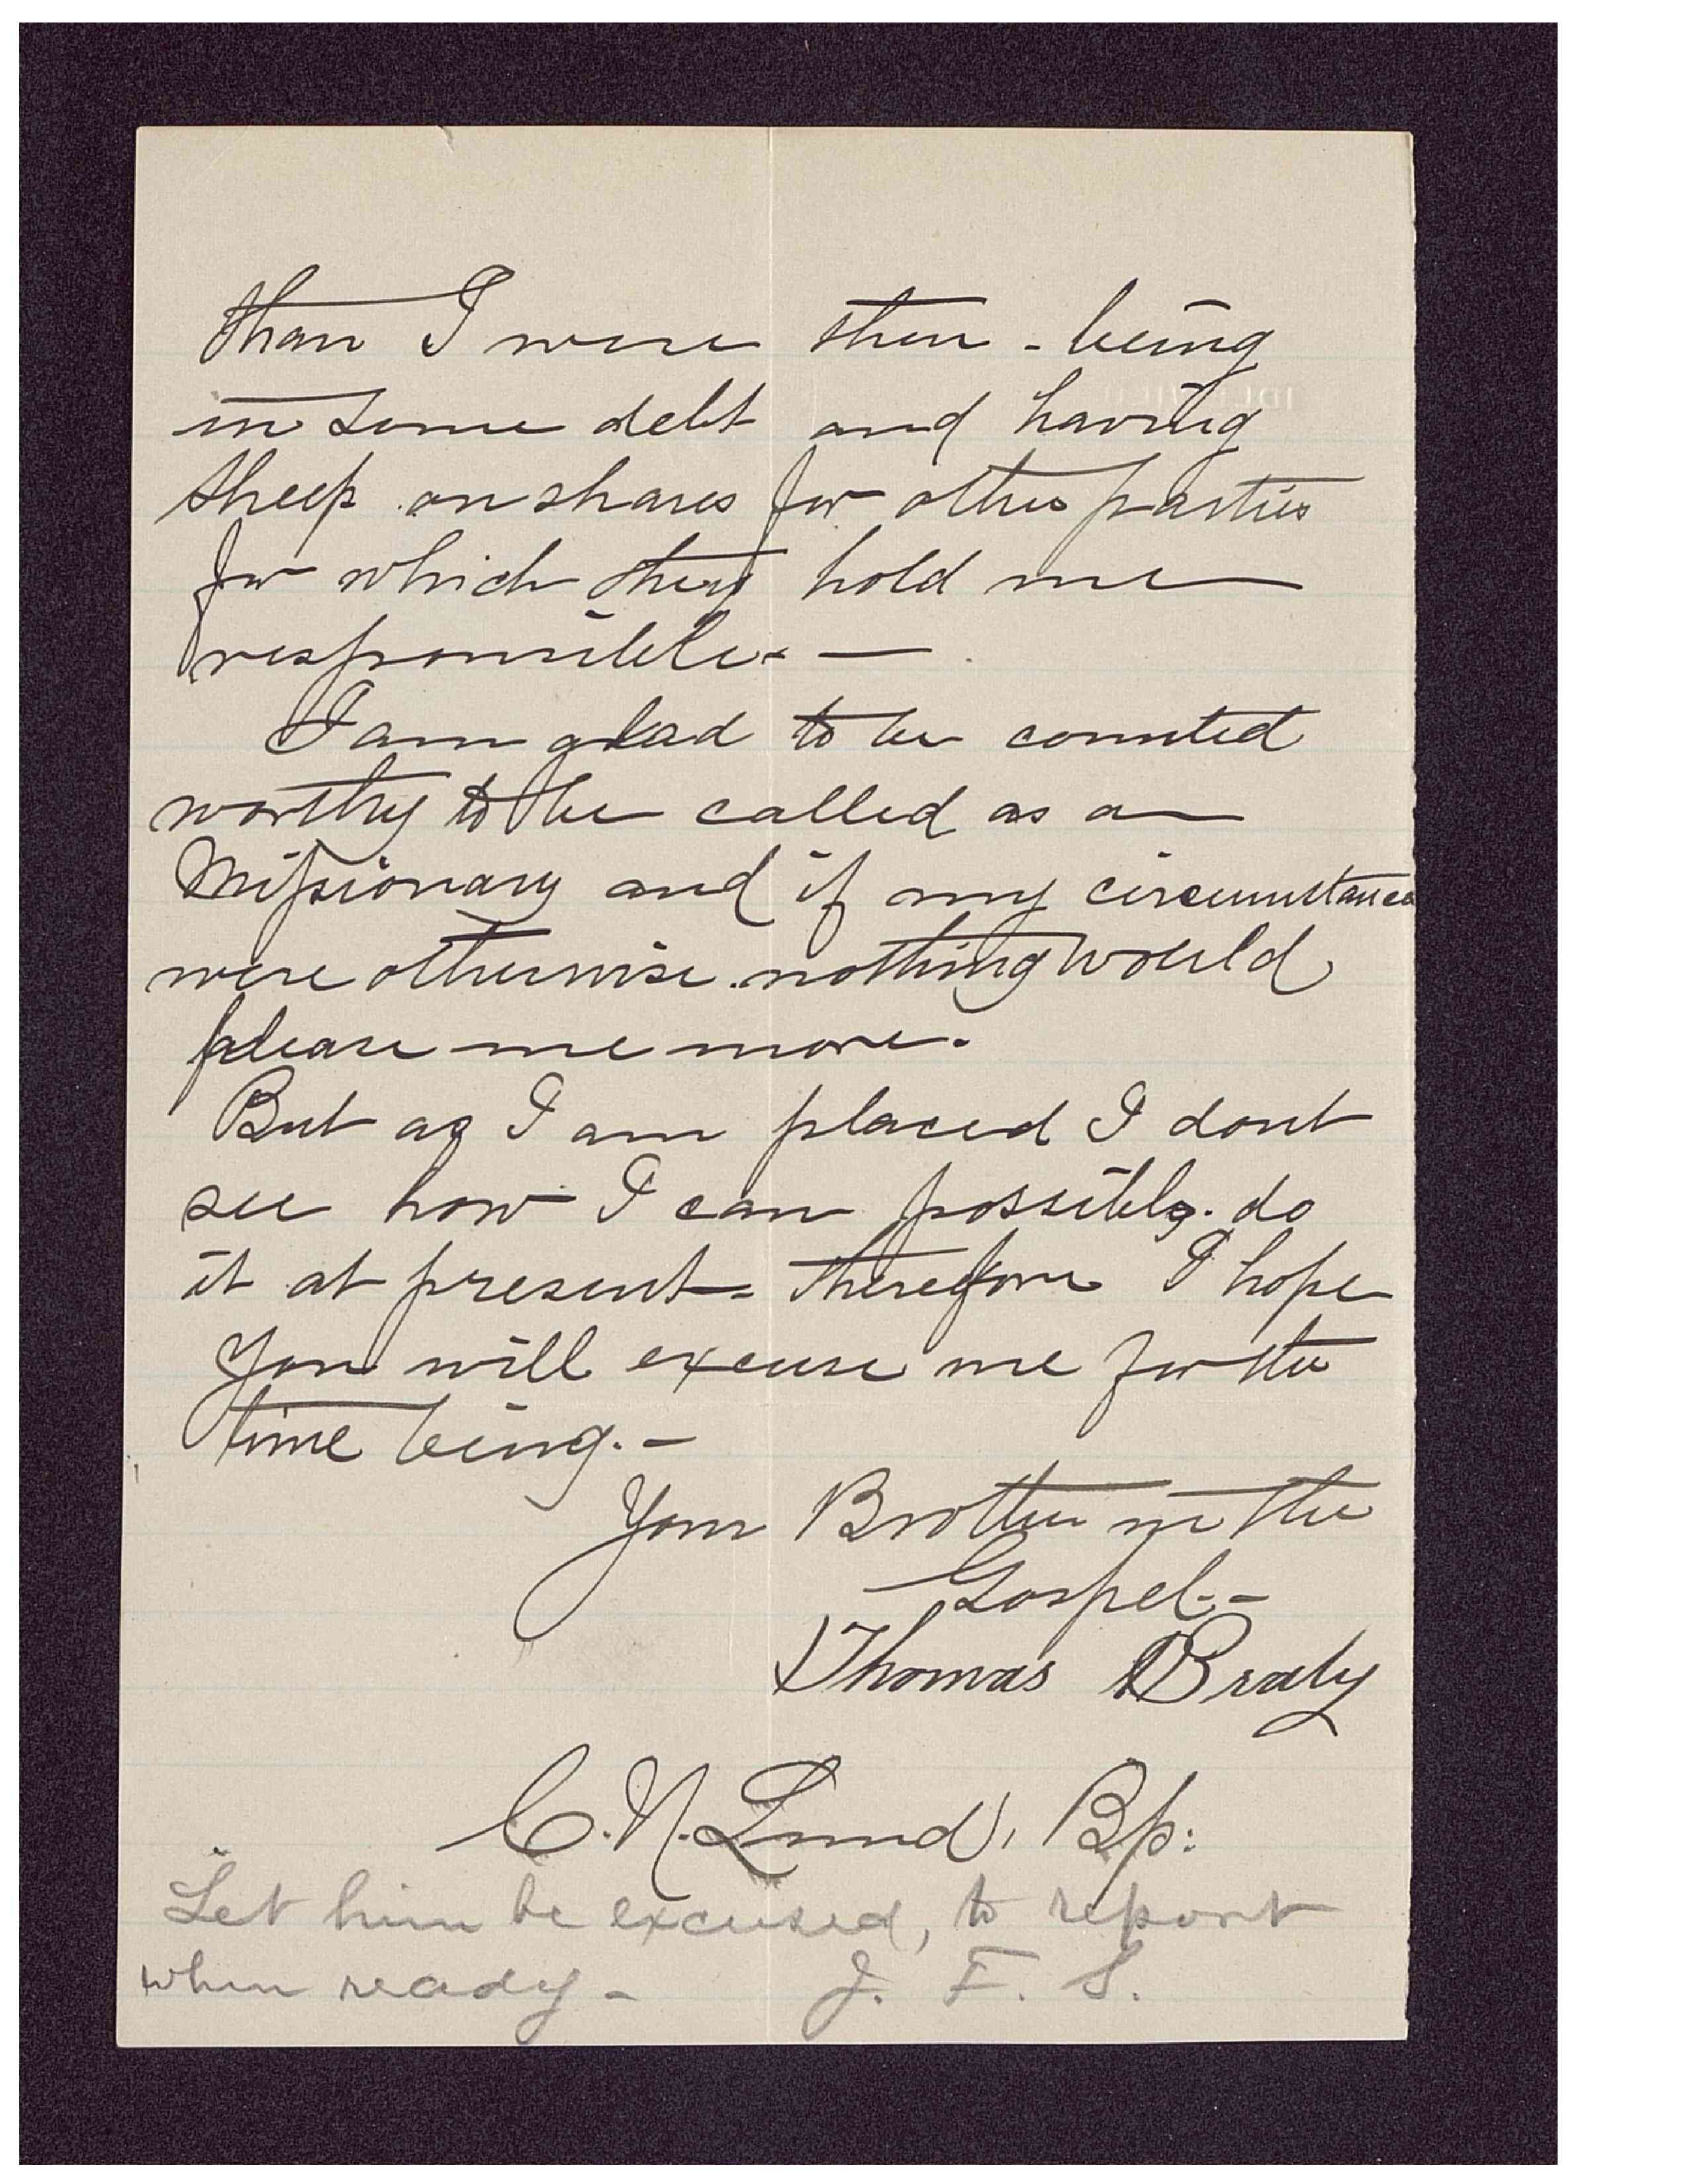 than I were then - being
in some debt and having
sheep on shares for other parties
for which they hold me
responsible. —
I am glad to be counted
worthy to be called as a
Missionary and if my circumstances
were otherwise nothing would
please me more.
But as I am placed I dont
see how I can possibly do
it at present - therefore I hope
you will excuse me for the
time being. -
Your Brother in the
Gospel. -
Thomas Braly
C. N. Lund, Bp:
Let him be excused, to report
when ready - J. F. S.